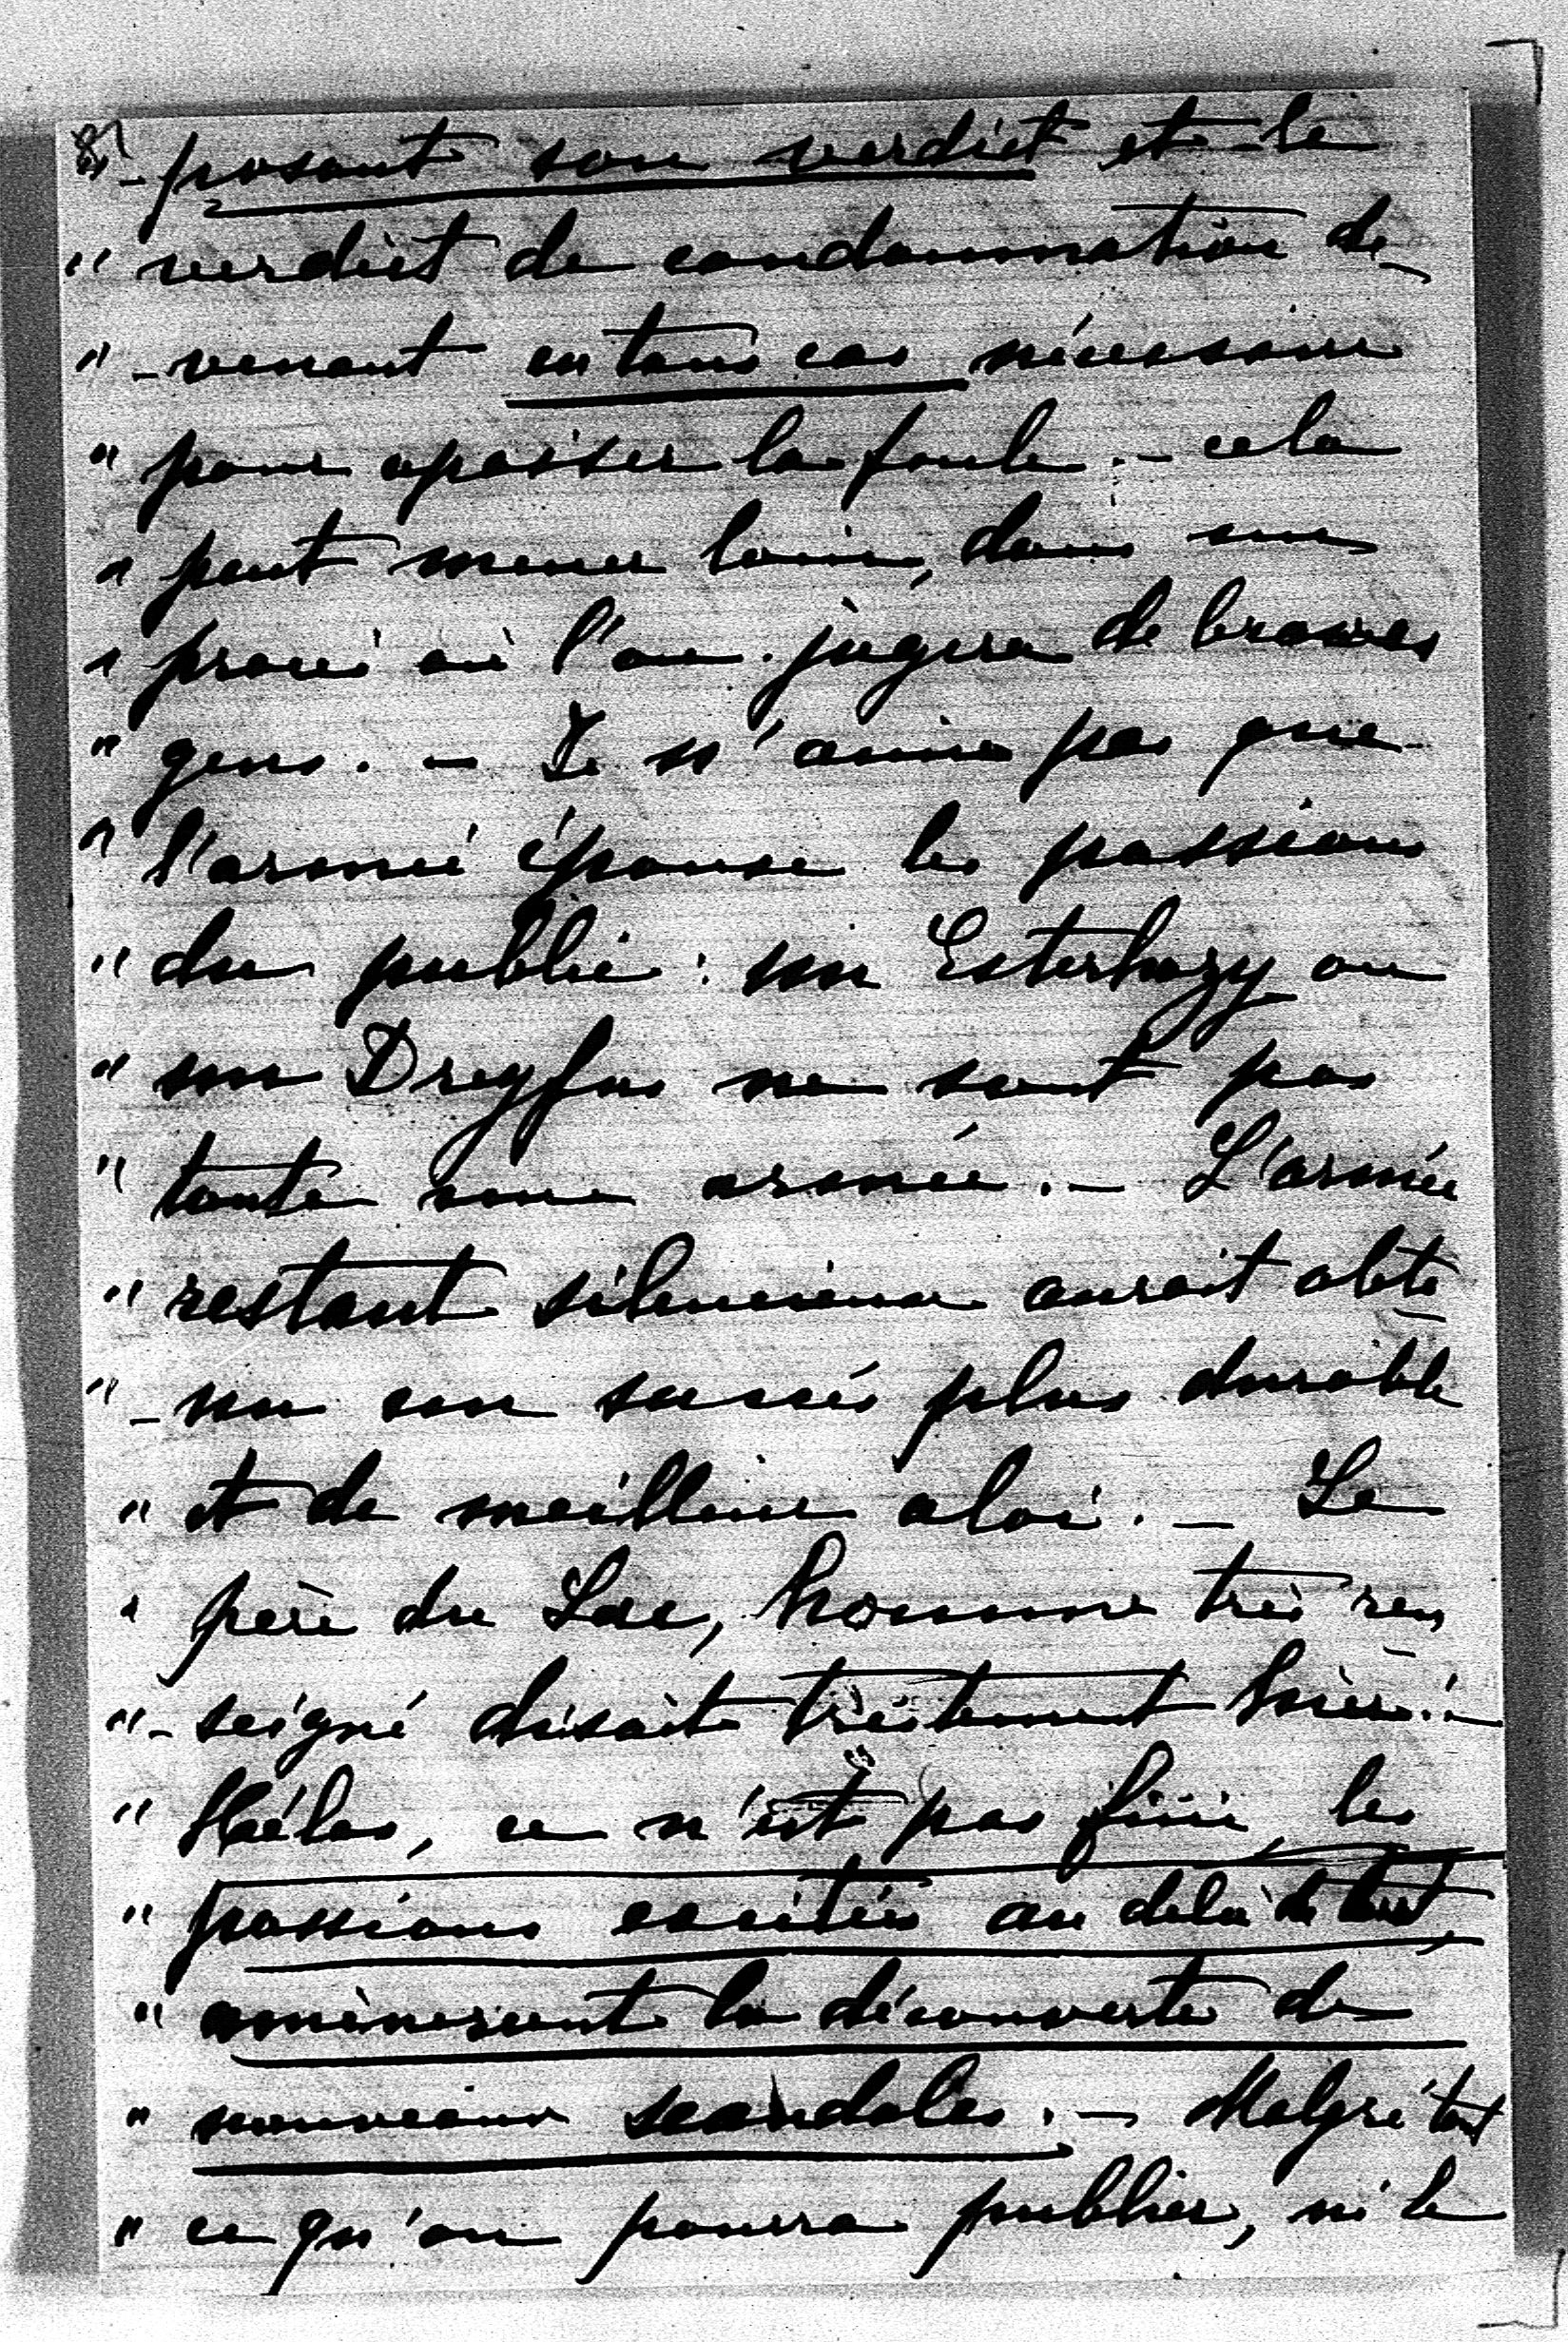 "- posant son verdict et le
" verdict de condamnation de-
" -venant en tous cas nécessaire
" pour apaiser la foule. – cela
" peut mener loin, dans un
" procès où l'on jugera de braves
" gens. – Je n'aime pas que
" l'armée épouse les passions
" du public : un Esterhazy ou
" un Dreyfus ne sont pas
" toute une armée. – L'armée
" restant silencieuse aurait obte-
" -nu son succès plus durable
" et de meilleur aloi. – Le
" père du Lac, homme très ren-
" -seigné disait tristement hier : –
" Hélas, ce n'est pas fini, les
" passions excitées au delà de tout,
" amèneront la découverte de
" nouveaux scandales. – Malgré tout
" ce qu'on pourra publier, ni le